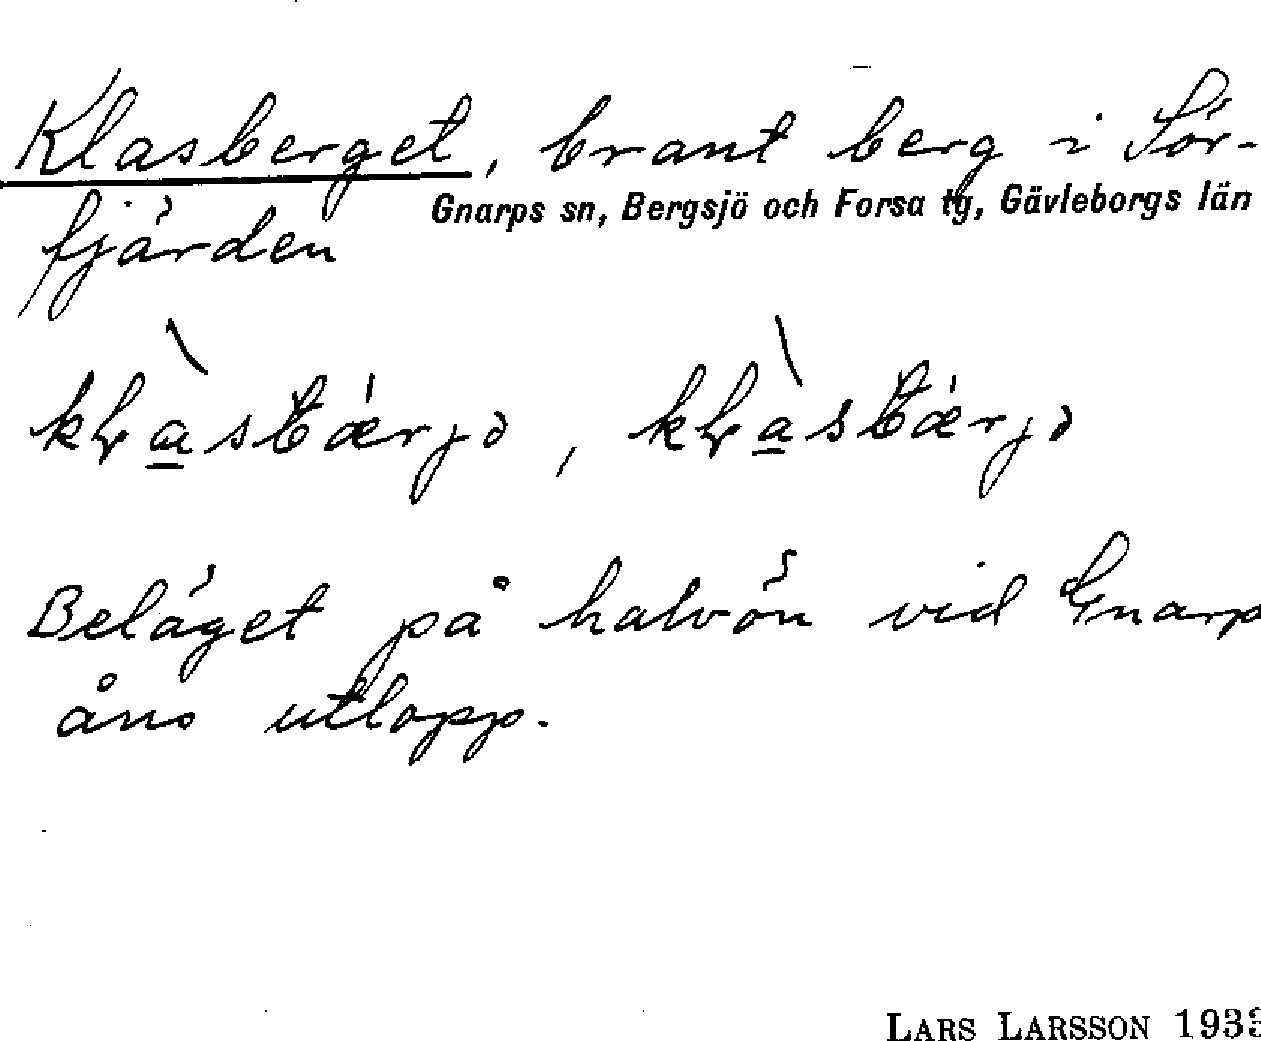 Klasberget, brant berg i Sör-
Gnarps sn, Bergsjö och Forsa tg, Gävleborgs län
fjärden
Beläget på halvön vid Gnarp
åns utlopp.
LARS LARSSON 1933